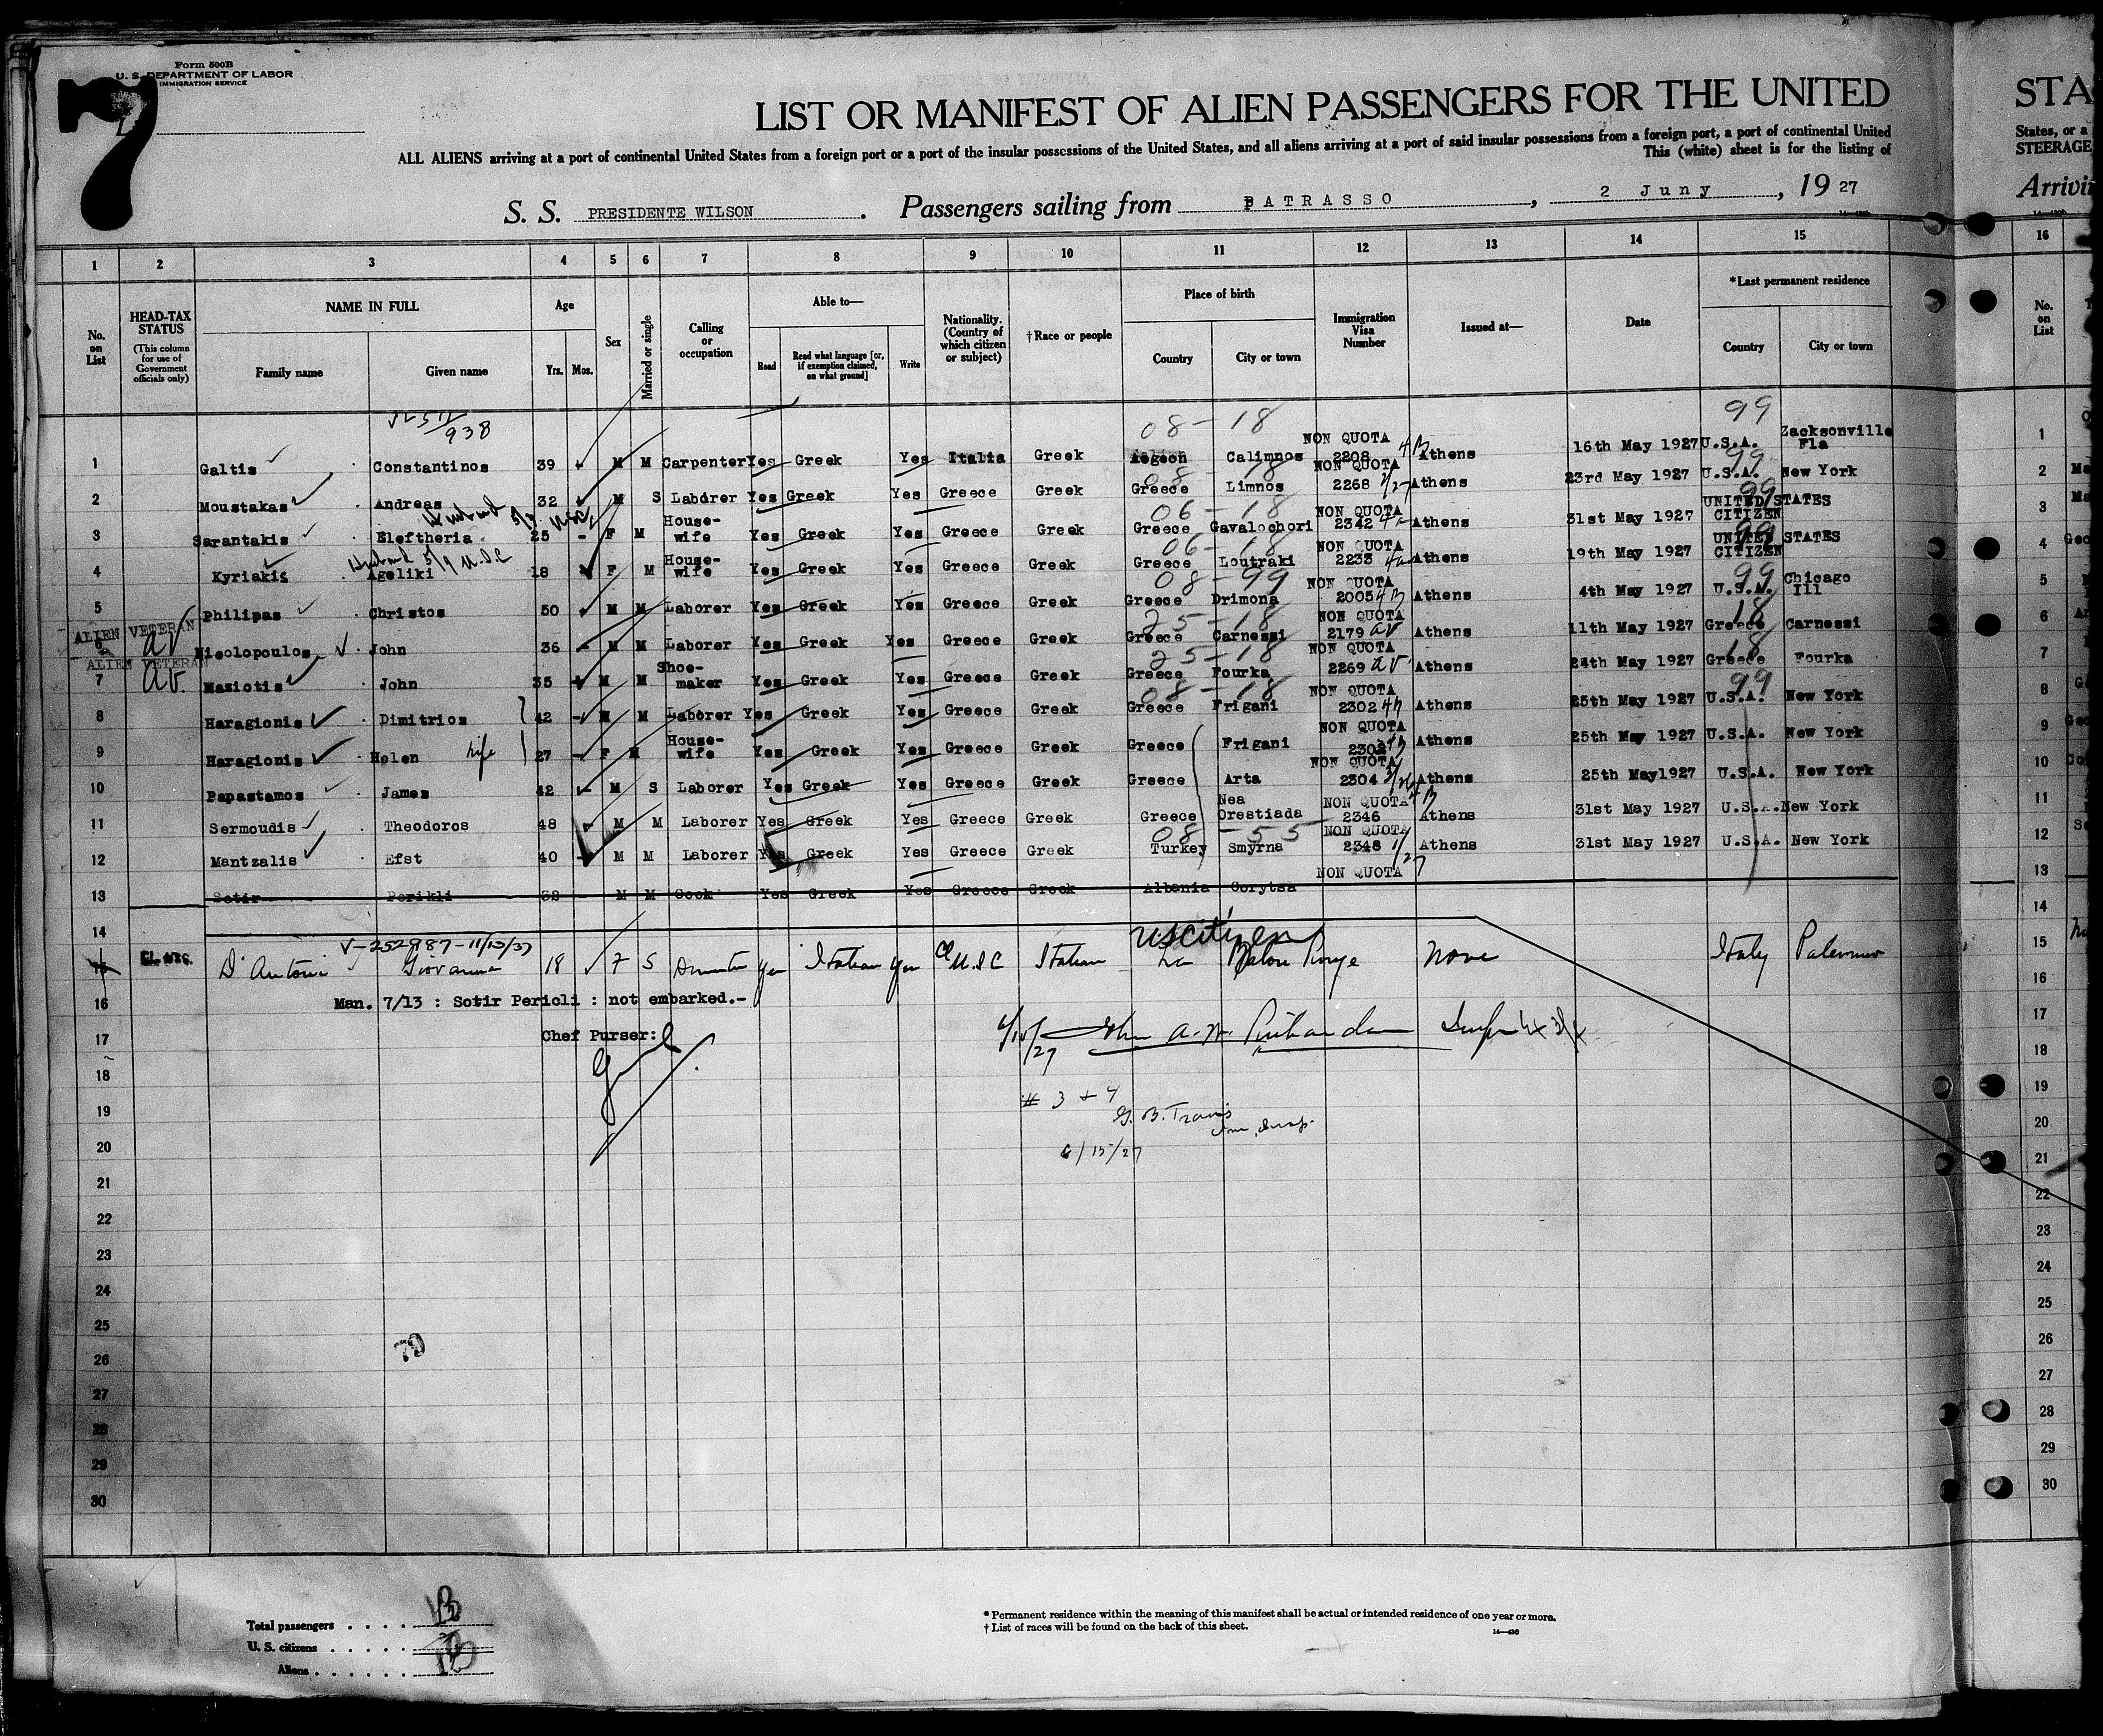 Form 500B
U. S. DEPARTMENT OF LABOR
IMMIGRATION SERVICE
7
LIST OR MANIFEST OF ALIEN PASSENGERS FOR THE UNITED
STA
ALL ALIENS arriving at a port of continental United States from a foreign port or a port of the insular possessions of the United States, and all aliens arriving at a port of said insular possessions from a foreign port, a port of continental United
States, or a
This (white) sheet is for the listing of
STEERAGE
S. S. PRESIDENTE WILSON. Passengers sailing from PATRASSO, 2 Juny, 19 27
Arrivin
1 2 3 4 5 6 7 8 9 10 11 12 13 14 15 16
No. on List
HEAD-TAX STATUS
(This column for use of Government officials only)
NAME IN FULL
Family name Given name
Age
Yrs. Mos.
Sex
Married or single
Calling or occupation
Able to—
Read
Read what language [or, if exemption claimed, on what ground]
Write
Nationality. (Country of which citizen or subject)
†Race or people
Place of birth
Country City or town
Immigration Visa Number
Issued at—
Date
*Last permanent residence
Country City or town
No. on List
938
08-18 99
1 Galtis Constantinos 39 M M Carpenter Yes Greek Yes Italia Greek Aegeon Calimnos NON QUOTA 2208 Athens 16th May 1927 U.S.A. Zacksonville Fla
2 Moustakas Andreas 32 M S Laborer Yes Greek Yes Greece Greek Greece Limnos NON QUOTA 2268 Athens 23rd May 1927 U.S.A. New York
06-18 99
3 Sarantakis Eleftheria 25 - F M House-wife Yes Greek Yes Greece Greek Greece Gavalochori NON QUOTA 2342 Athens 31st May 1927 UNITED STATES CITIZEN
Husband 5/9 U.S.C
06-18 99
4 Kyriakis Ageliki 18 F M House-wife Yes Greek Yes Greece Greek Greece Loutraki NON QUOTA 2233 Athens 19th May 1927 UNITED STATES CITIZEN
08-99 99
5 Philipas Christos 50 M M Laborer Yes Greek Yes Greece Greek Greece Drimona NON QUOTA 2005 Athens 4th May 1927 U.S.A. Chicago Ill
ALIEN VETERAN
25-18 18
6 av Nicolopoulos John 36 - M M Laborer Yes Greek Yes Greece Greek Greece Carnessi NON QUOTA 2179 av Athens 11th May 1927 Greece Carnessi
ALIEN VETERAN
25-18 18
7 av. Maziotis John 35 M M Shoe-maker Yes Greek Yes Greece Greek Greece Fourka NON QUOTA 2269 av Athens 24th May 1927 Greece Fourka
08-18 99
8 Haragionis Dimitrios 42 - M M Laborer Yes Greek Yes Greece Greek Greece Frigani NON QUOTA 2302 Athens 25th May 1927 U.S.A. New York
9 Haragionis Helen wife 27 - F M House-wife Yes Greek Yes Greece Greek Greece Frigani NON QUOTA Athens 25th May 1927 U.S.A. New York
10 Papastamos James 42 M S Laborer Yes Greek Yes Greece Greek Greece Arta NON QUOTA 2304 Athens 25th May1927 U.S.A. New York
11 Sermoudis Theodoros 48 - M M Laborer Yes Greek Yes Greece Greek Greece Nea Orestiada NON QUOTA 2346 Athens 31st May 1927 U.S.A. New York
08-55
12 Mantzalis Efst 40 - M M Laborer Yes Greek Yes Greece Greek Turkey Smyrna NON QUOTA 2348 Athens 31st May 1927 U.S.A. New York
13 Sotir Perikli 32 - M M Cook Yes Greek Yes Greece Greek Albania Corytsa NON QUOTA
14
us citizen
V-252987-11/13/37
15 D'Antoni Giovanna 18 F S yes Italian yes U.S.C Italian La Baton Rouge None Italy Palermo
16 Man. 7/13 : Sotir Perioli : not embarked.-
17 Chef Purser:
6/15/27 John A. W. Richardson
18
# 3 + 4
19
G. B. Travis
Imm. Insp.
20
6/15/27
21
22
23
24
25
26
79
27
28
29
30
Total passengers
U. S. citizens
Aliens
* Permanent residence within the meaning of this manifest shall be actual or intended residence of one year or more.
† List of races will be found on the back of this sheet.